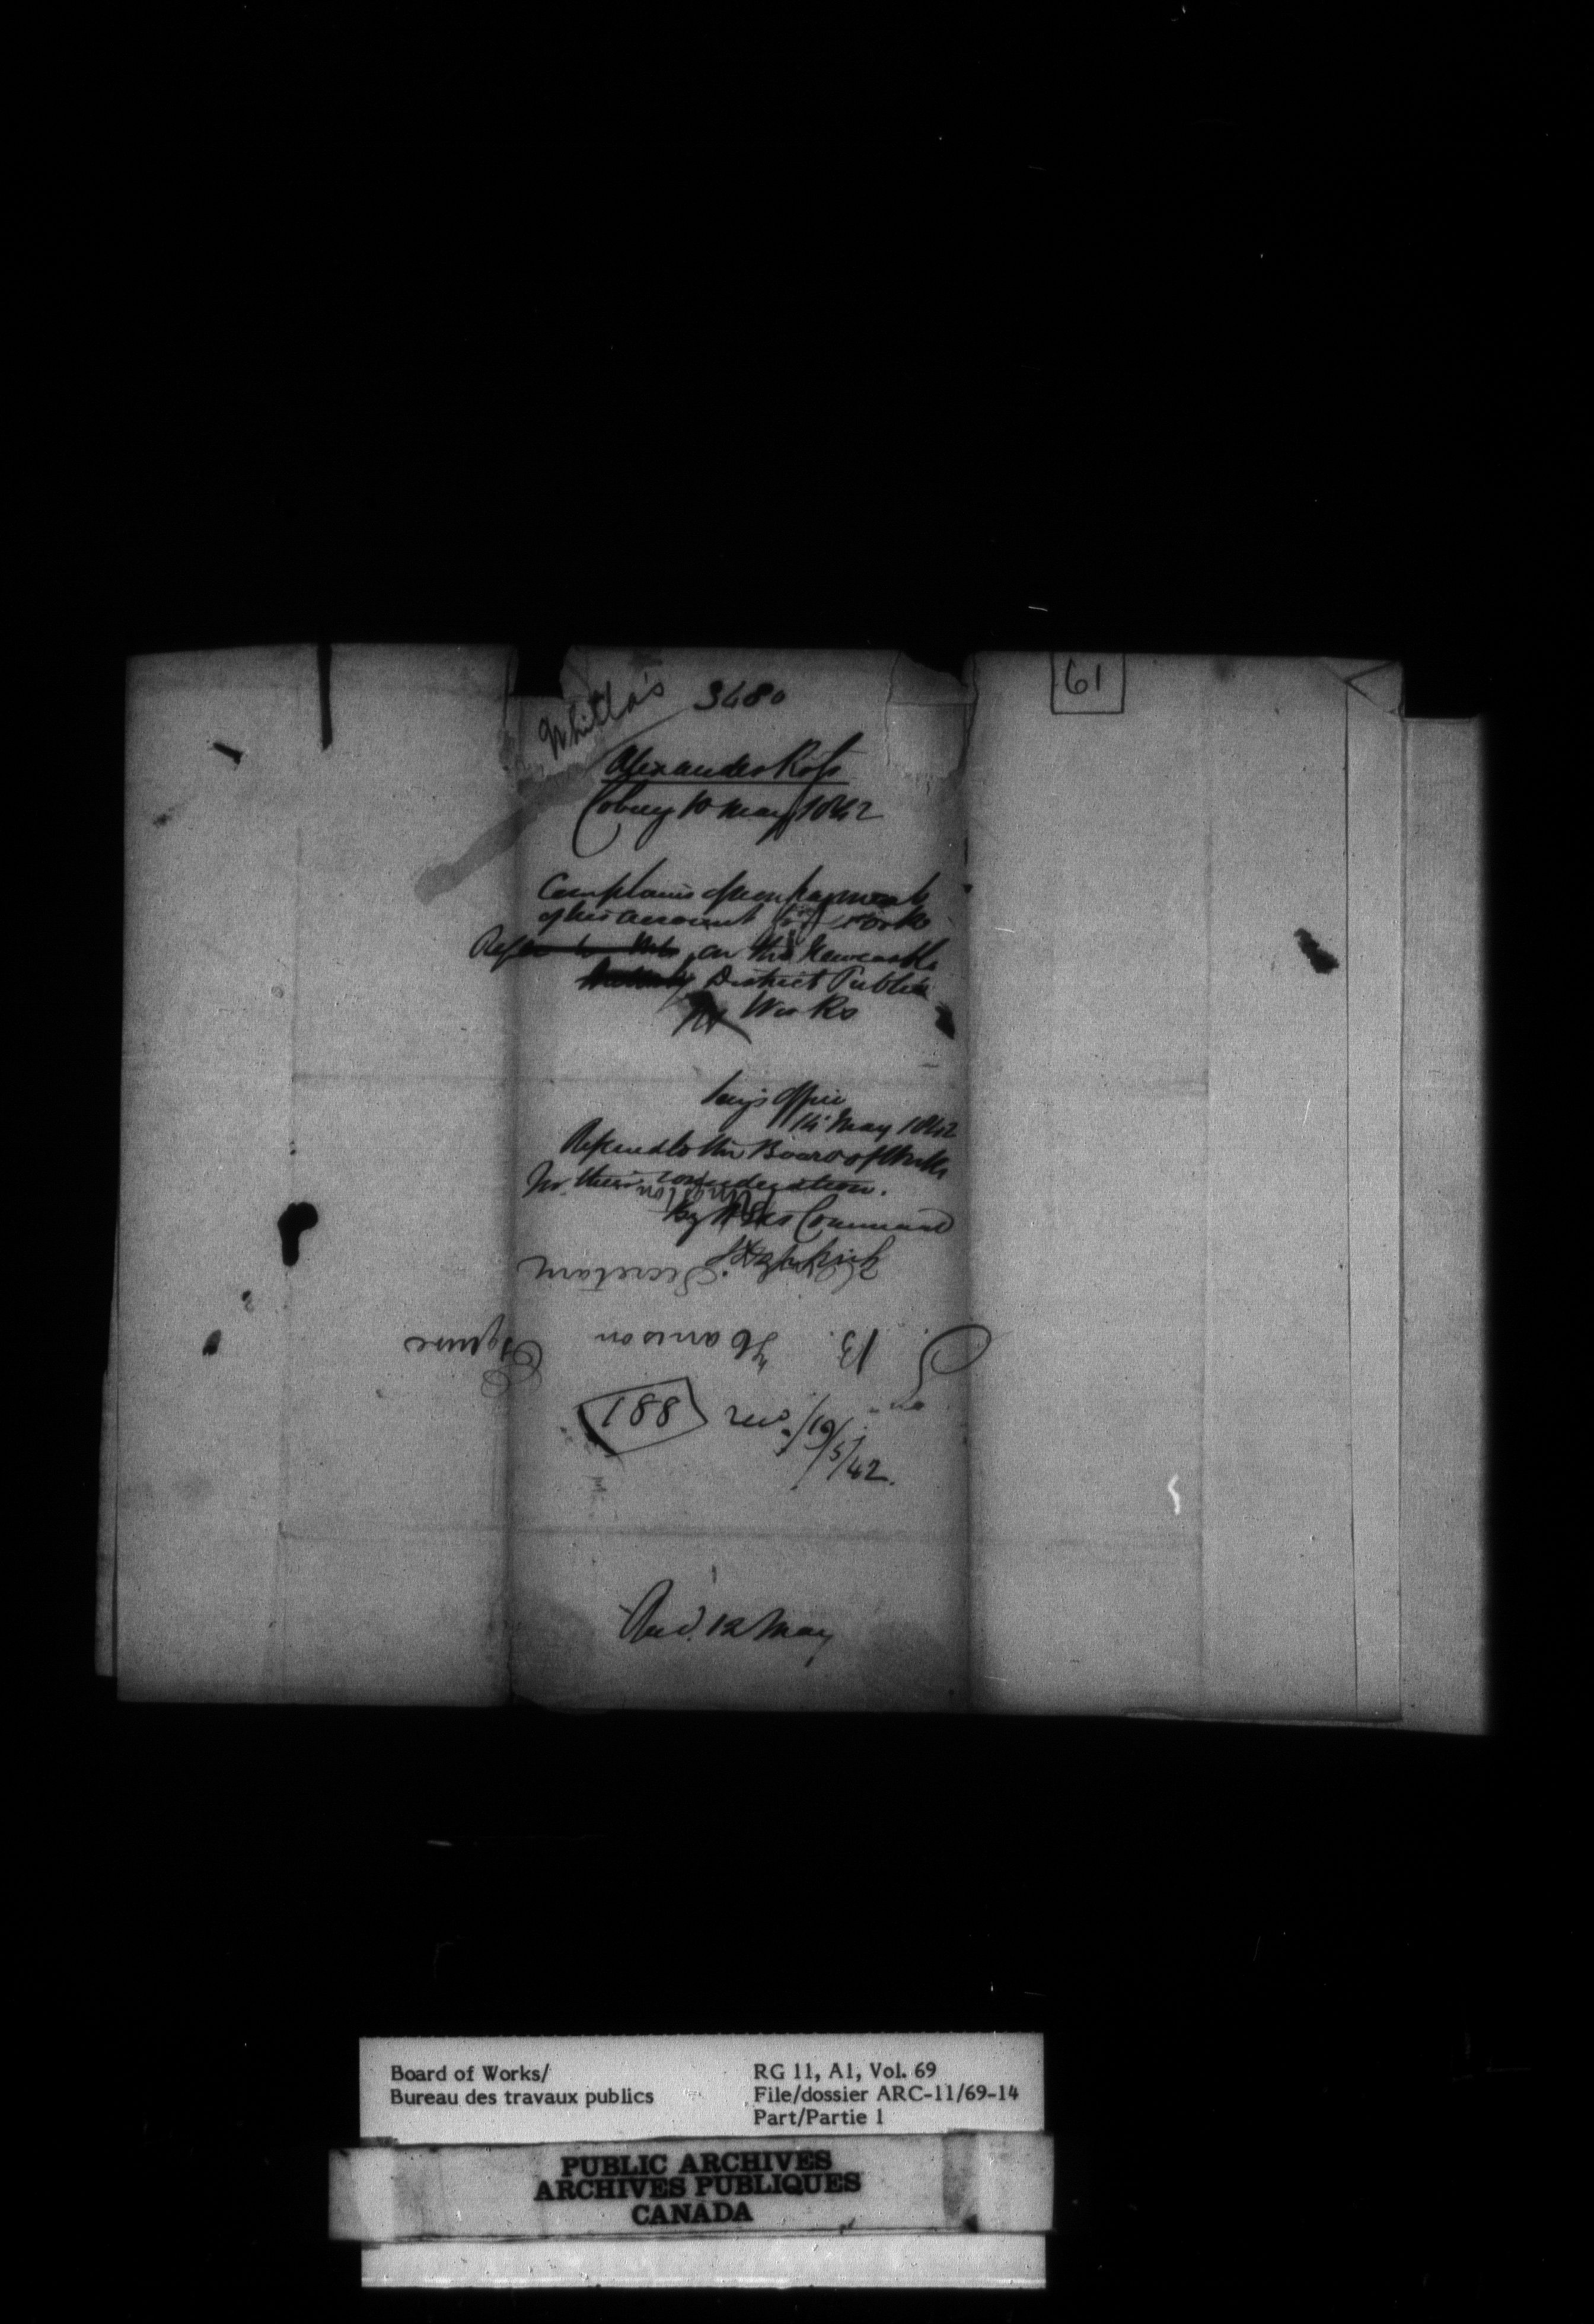 61
Whitla's
3480
Alexander Ross
Cobourg 10 May 1842
Complains of non payment
of his account for work
Refer on the Newcastle
District Public
Works
Secy's Office
14 May 1842
Referred to the Board of Works
for their consideration.
By His Command
S. B. Harrison Esquire
Secretary
Kingston
881
16/5/42.
Recd. 12 May
Board of Works/
Bureau des travaux publics
RG 11, A1, Vol. 69
File/dossier ARC-11/69-14
Part/Partie 1
PUBLIC ARCHIVES
ARCHIVES PUBLIQUES
CANADA